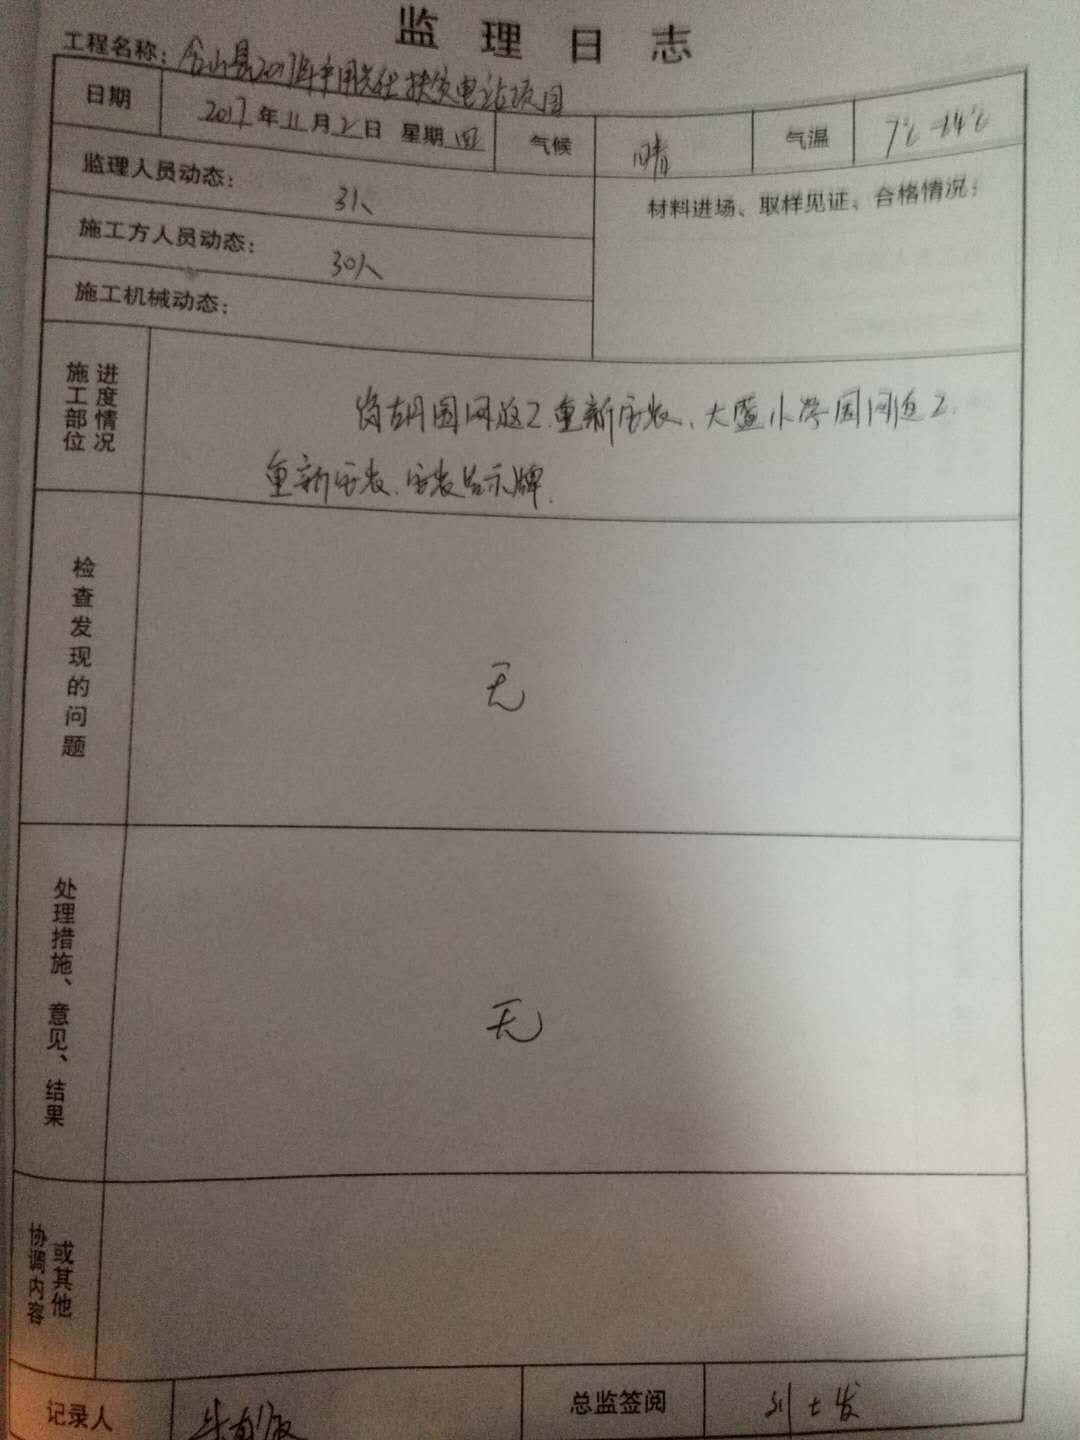 监理日志
工程名称：含山县2017年户用光伏扶贫电站项目
日期 2017年11月2日 星期四 气候 晴 气温 7℃-14℃
监理人员动态： 3人
材料进场、取样见证、合格情况：
施工方人员动态： 30人
施工机械动态：
施工部位进度情况
围网返工.重新安装、大 小学围网返工.
重新安装.安装告示牌.
检查发现的问题
无
处理措施、意见、结果
无
协调内容或其他
记录人 总监签阅